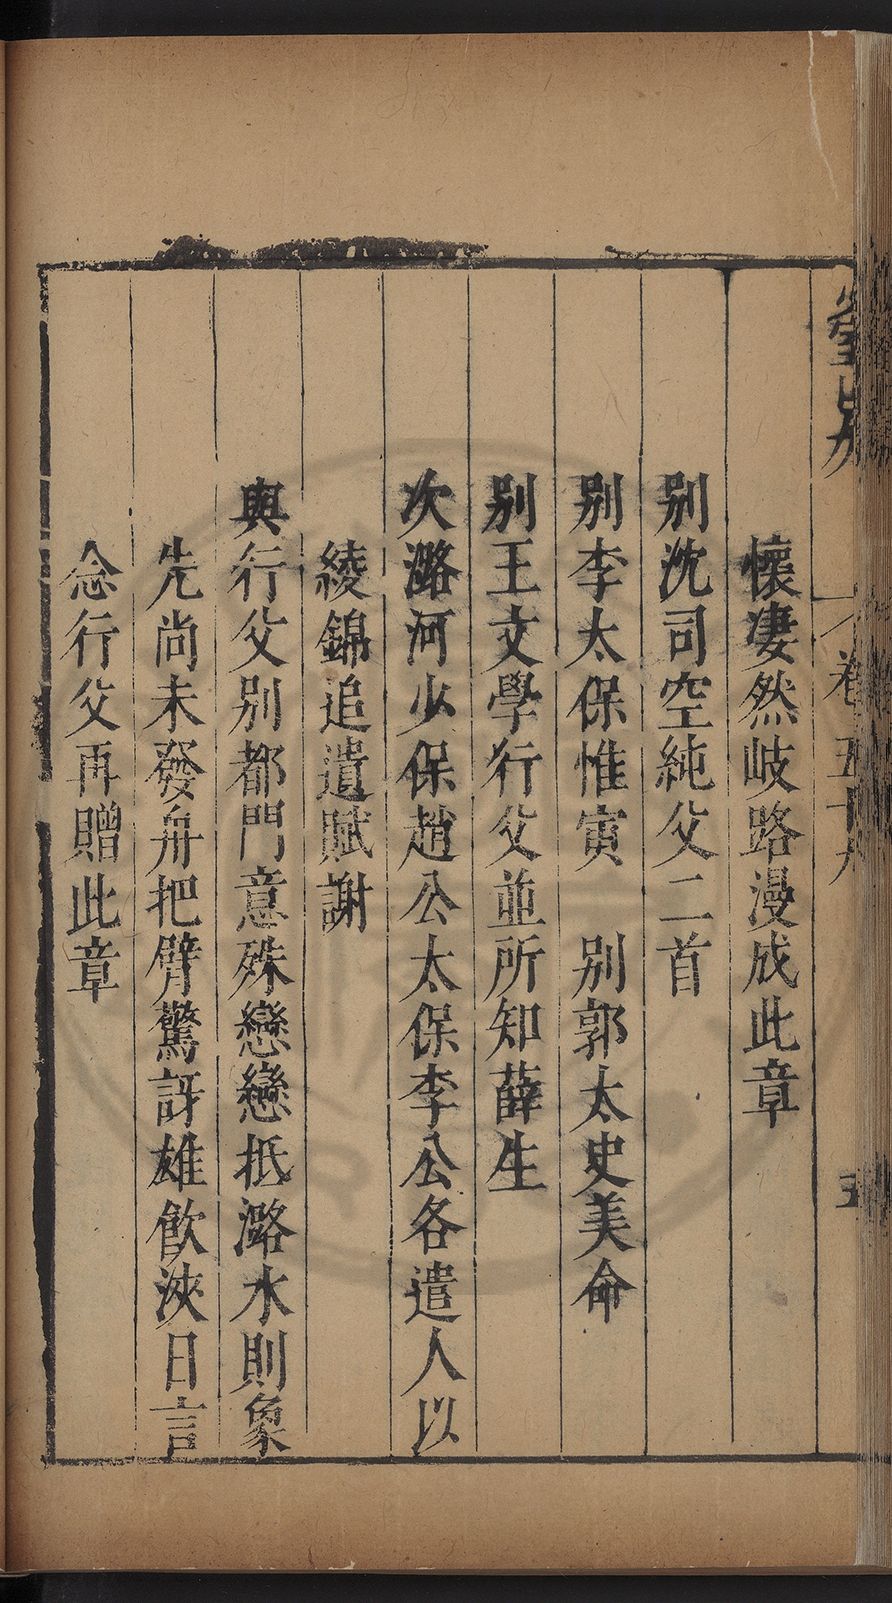 卷五十
五
懷凄然岐路漫成此章
別沈司空純父二首
別李太保惟寅　別郭太史美命
別王文學行父並所知薛生
次潞河少保趙公太保李公各遣人以
綾錦追遺賦謝
與行父別都門意殊戀戀抵潞水則象
先尚未發舟把臂驚訝雄飲浹日言
念行父再贈此章